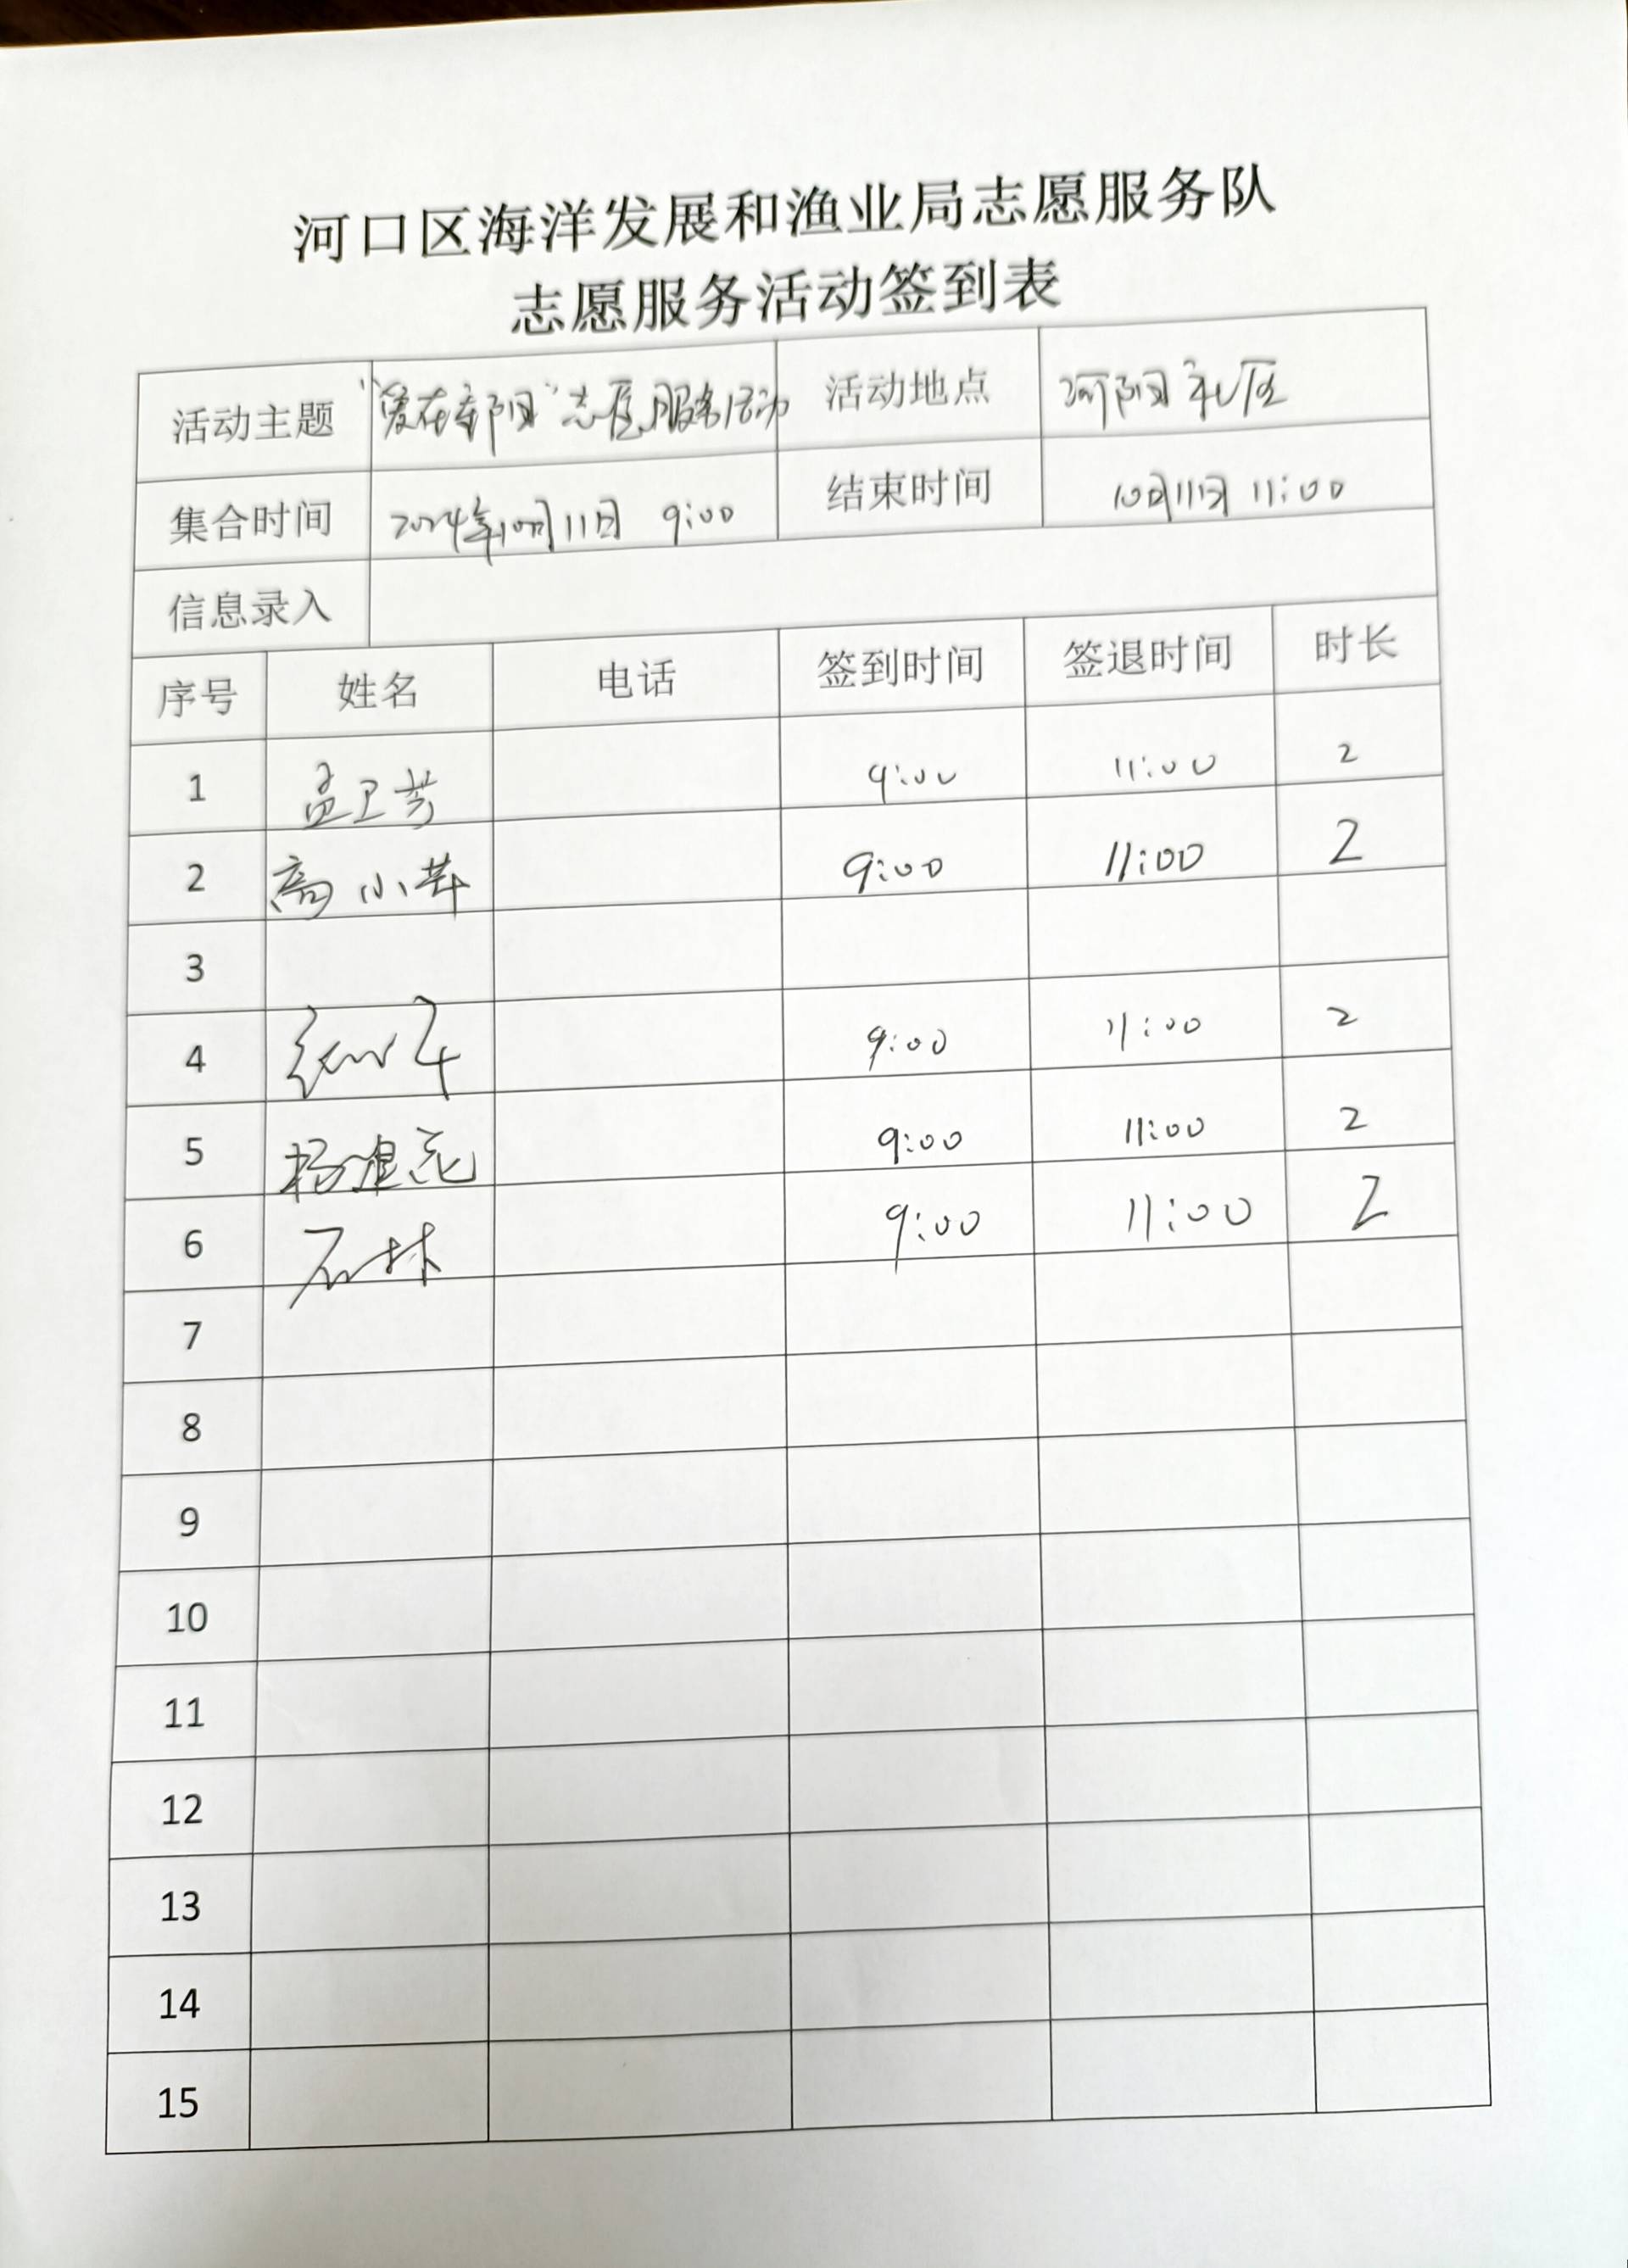 河口区海洋发展和渔业局志愿服务队
志愿服务活动签到表
活动主题 "爱在重阳"志愿服务活动 活动地点 河阳社区
集合时间 2024年10月11日 9:00 结束时间 10月11日 11:00
信息录入
序号 姓名 电话 签到时间 签退时间 时长
1 孟卫芳 9:00 11:00 2
2 高小苹 9:00 11:00 2
3
4 9:00 11:00 2
5 9:00 11:00 2
6 石林 9:00 11:00 2
7
8
9
10
11
12
13
14
15